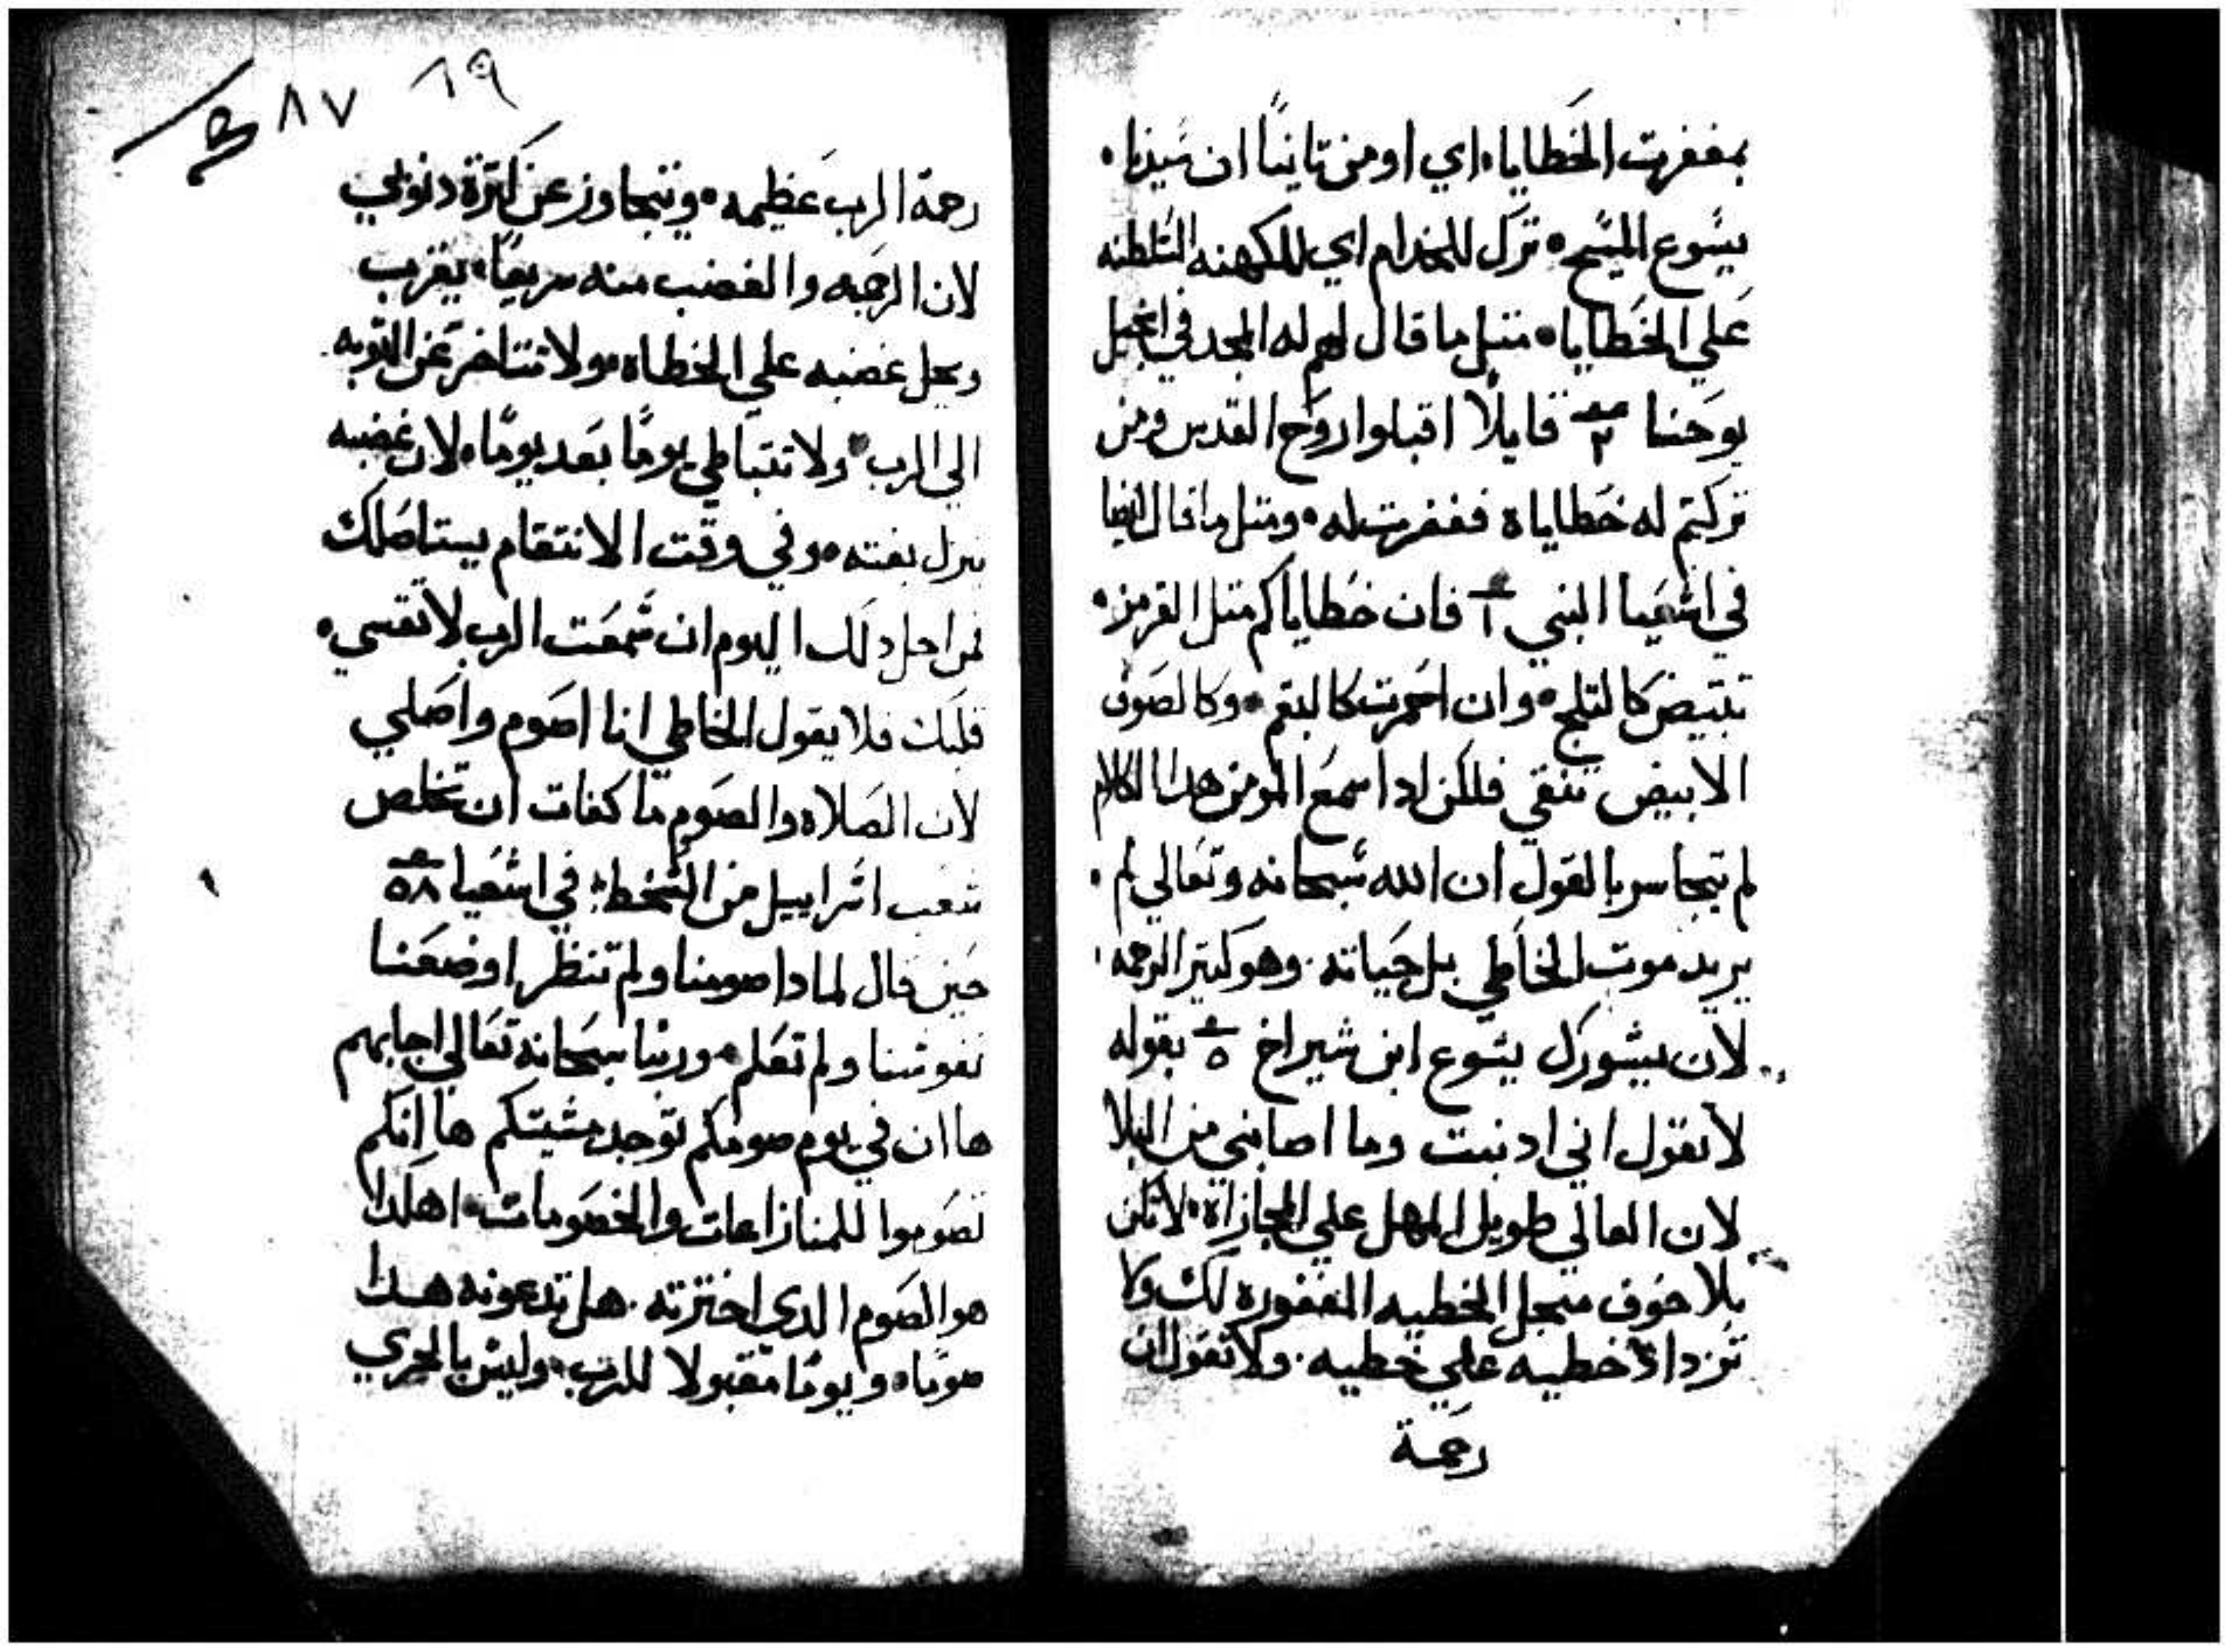 بمغفرت الخطايا، اي اومن تانيًا ان سيدنا،
يسوع المسيح، ترك للخدام اي للكهنه السلطنه
علي الخطايا، متل ما قال لهم له المجد في انجيل
يوحنا ٢ قايلًا اقبلوا روح القدس ومن
تركتم له خطاياه فغفرت له، ومتل ما قال ايضا
في اشعيا النبي ١ فان خطاياكم متل القرمز،
تبتيض كالتلج، وان احمرت كالبقم، وكالصوف
الابيض تنقي فلكن ادا سمع المومن هدا الكلام
لم يتجاسر بالقول ان الله سبحانه وتعالي لم،
يريد موت الخاطي بل حياته. وهو كتير الرحمه،
لان يشورك يسوع ابن شيراخ ٥ بقوله
لا تقول اني ادنبت وما اصابني من البلا
لان العالي طويل المهل علي المجازاة، لا تكن
بلا خوف منجل الخطيه المغفوره لك ولا
تزداد خطيه علي خطيه. ولا تقول ان
رحمة
٨٧ ١٩
رحمة الرب عظيمه، ويتجاوز عن كترة دنوبي
لان الرحمه والغضب منه سريعًا، يقرب
ويحل غضبه علي الخطاه، ولا تتاخر عن التوبه
الي الرب، ولا تتباطي يومًا بعد يومًا، لان غضبه
ينزل بغته، وفي وقت الانتقام يستاصلك
فمن اجل دلك اليوم ان سمعت الرب لا تقسي،
قلبك فلا يقول الخاطي انا اصوم واصلي
لان الصلاه والصوم ما كفات ان تخلص
شعب اسراييل من السخط، في اشعيا ٥٨
حين قال لمادا صومنا ولم تنظر، اوضعنا
نفوسنا ولم تعلم، وربنا سبحانه تعالي اجابهم
ها ان في يوم صومكم توجد مشيتكم ها انكم
تصوموا للمنازاعات والخصومات، اهكدا
هو الصوم الدي اخترته. هل تدعونه هدا
صومًا، ويومًا مقبولا للرب، وليس بالحري